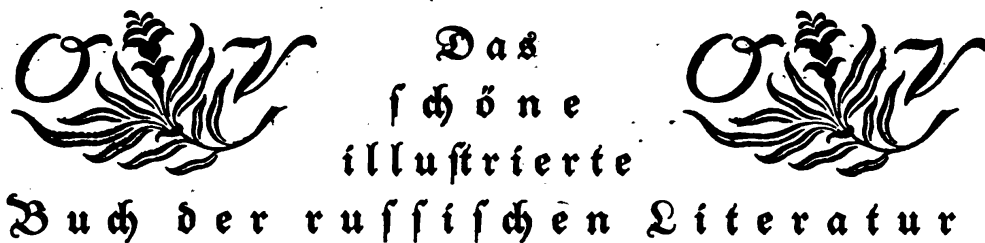 O V
O V
Das
schöne
illustrierte
Buch der russischen Literatur